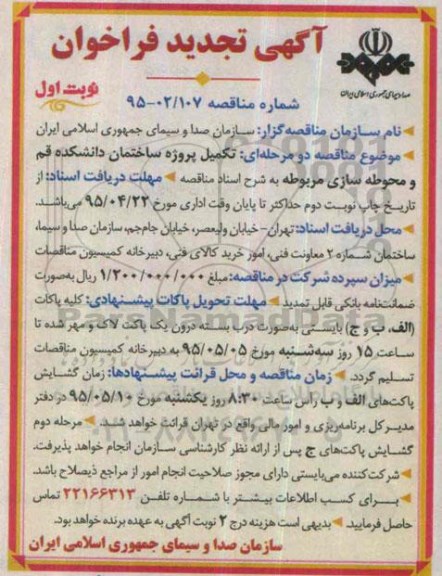 آگهی تجدید فراخوان
صدا و سیمای جمهوری اسلامی ایران
نوبت اول
شماره مناقصه ۰۲/۱۰۷-۹۵
نام سازمان مناقصه‌گزار: سازمان صدا و سیمای جمهوری اسلامی ایران
موضوع مناقصه دو مرحله‌ای: تکمیل پروژه ساختمان دانشکده قم
و محوطه سازی مربوطه به شرح اسناد مناقصه مهلت دریافت اسناد: از
تاریخ چاپ نوبت دوم حداکثر تا پایان وقت اداری مورخ ۹۵/۰۴/۲۲ می‌باشد.
محل دریافت اسناد: تهران- خیابان ولیعصر، خیابان جام‌جم، سازمان صدا و سیما،
ساختمان شماره ۲ معاونت فنی، امور خرید کالای فنی، دبیرخانه کمیسیون مناقصات
میزان سپرده شرکت در مناقصه: مبلغ ۱/۲۰۰/۰۰۰/۰۰۰ ریال به‌صورت
ضمانتنامه بانکی قابل تمدید مهلت تحویل پاکات پیشنهادی: کلیه پاکات
(الف، ب و ج) بایستی به‌صورت درب بسته درون یک پاکت لاک و مهر شده تا
ساعت ۱۵ روز سه‌شنبه مورخ ۹۵/۰۵/۰۵ به دبیرخانه کمیسیون مناقصات
تسلیم گردد. زمان مناقصه و محل قرائت پیشنهادها: زمان گشایش
پاکت‌های الف و ب راس ساعت ۸:۳۰ روز یکشنبه مورخ ۹۵/۰۵/۱۰ در دفتر
مدیرکل برنامه‌ریزی و امور مالی واقع در تهران قرائت خواهد شد. مرحله دوم
گشایش پاکت‌های ج پس از ارائه نظر کارشناسی سازمان انجام خواهد پذیرفت.
شرکت‌کننده می‌بایستی دارای مجوز صلاحیت انجام امور از مراجع ذیصلاح باشد.
برای کسب اطلاعات بیشتر با شماره تلفن ۲۲۱۶۶۳۱۳ تماس
حاصل فرمایید بدیهی است هزینه درج ۲ نوبت آگهی به عهده برنده خواهد بود.
سازمان صدا و سیمای جمهوری اسلامی ایران
ParsNamadData